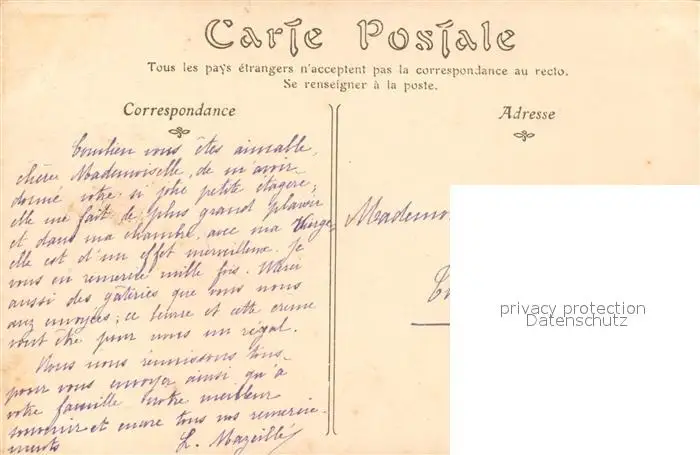 Carte Postale
Tous les pays étrangers n'acceptent pas la correspondance au recto.
Se renseigner à la poste.
Correspondance
Adresse
Combien vous êtes aimable,
chère Mademoiselle, de m'avoir
donné votre si jolie petite étagère;
elle me fait de plus grand plaisir
et dans ma chambre, avec ma Vierge,
elle est d'un effet merveilleux. Je
vous en remercie mille fois. Merci
aussi des gâteries que vous nous
avez envoyées; ce beurre et cette creme
vont être pour nous un régal.
Nous nous réunissons tous
pour vous envoyer ainsi qu'à
votre famille notre meilleur
souvenir et encore tous nos remercie-
ments
L. Mazeillé
Mademoi
privacy protection
Datenschutz